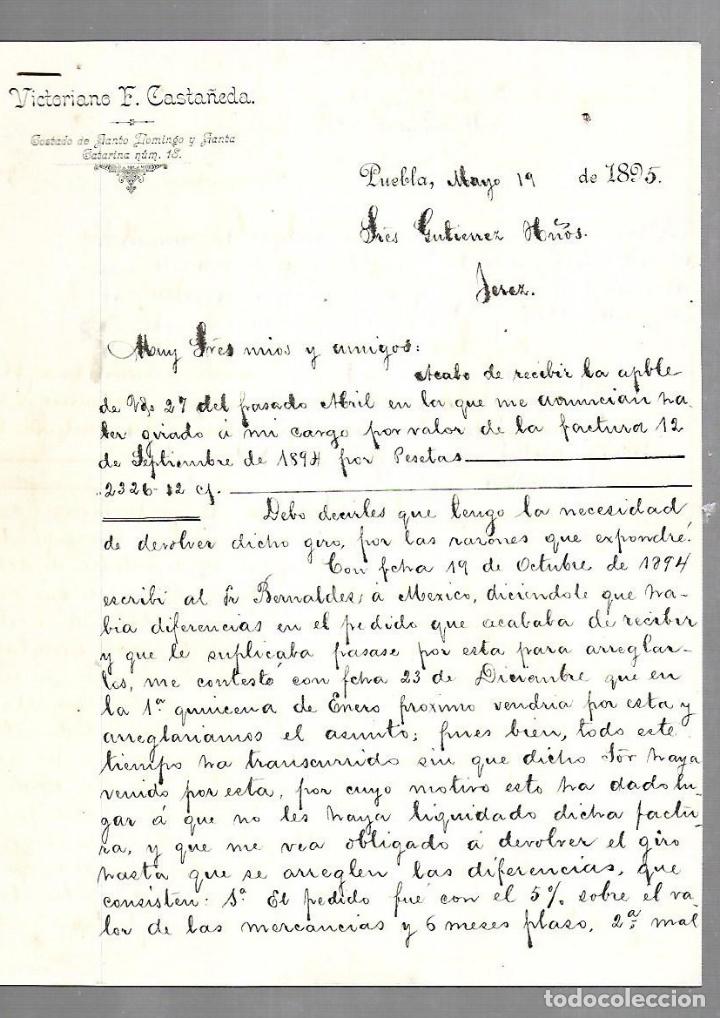 Victoriano F. Castañeda.
Costado de Santo Domingo y Santa
Catarina núm. 18.
Puebla, Mayo 19 de 1895.
Sres Gutierrez Hños.
Jerez.
Muy Sres mios y amigos:
Acabo de recibir la apble
de Vds 27 del pasado Abril en la que me anuncian ha-
ber girado á mi cargo por valor de la factura 12
de Septiembre de 1894 por Pesetas
2326-12 cs.
Debo decirles que tengo la necesidad
de devolver dicho giro, por las razones que expondré.
Con fcha 19 de Octubre de 1894
escribi al Sr Bernaldes, á Mexico, diciendole que ha-
bia diferencias en el pedido que acababa de recibir
y que le suplicaba pasase por esta para arreglar-
los, me contestó con fcha 23 de Diciembre que en
la 1ª quincena de Enero proximo vendria por esta y
arreglariamos el asunto; pues bien, todo este
tiempo ha transcurrido sin que dicho Sor haya
venido por esta, por cuyo motivo esto ha dado lu-
gar á que no les haya liquidado dicha factu-
ra, y que me vea obligado á devolver el giro
hasta que se arreglen las diferencias, que
consisten: 1ª El pedido fué con el 5% sobre el va-
lor de las mercancias y 6 meses plaso, 2ª mal
todocoleccion